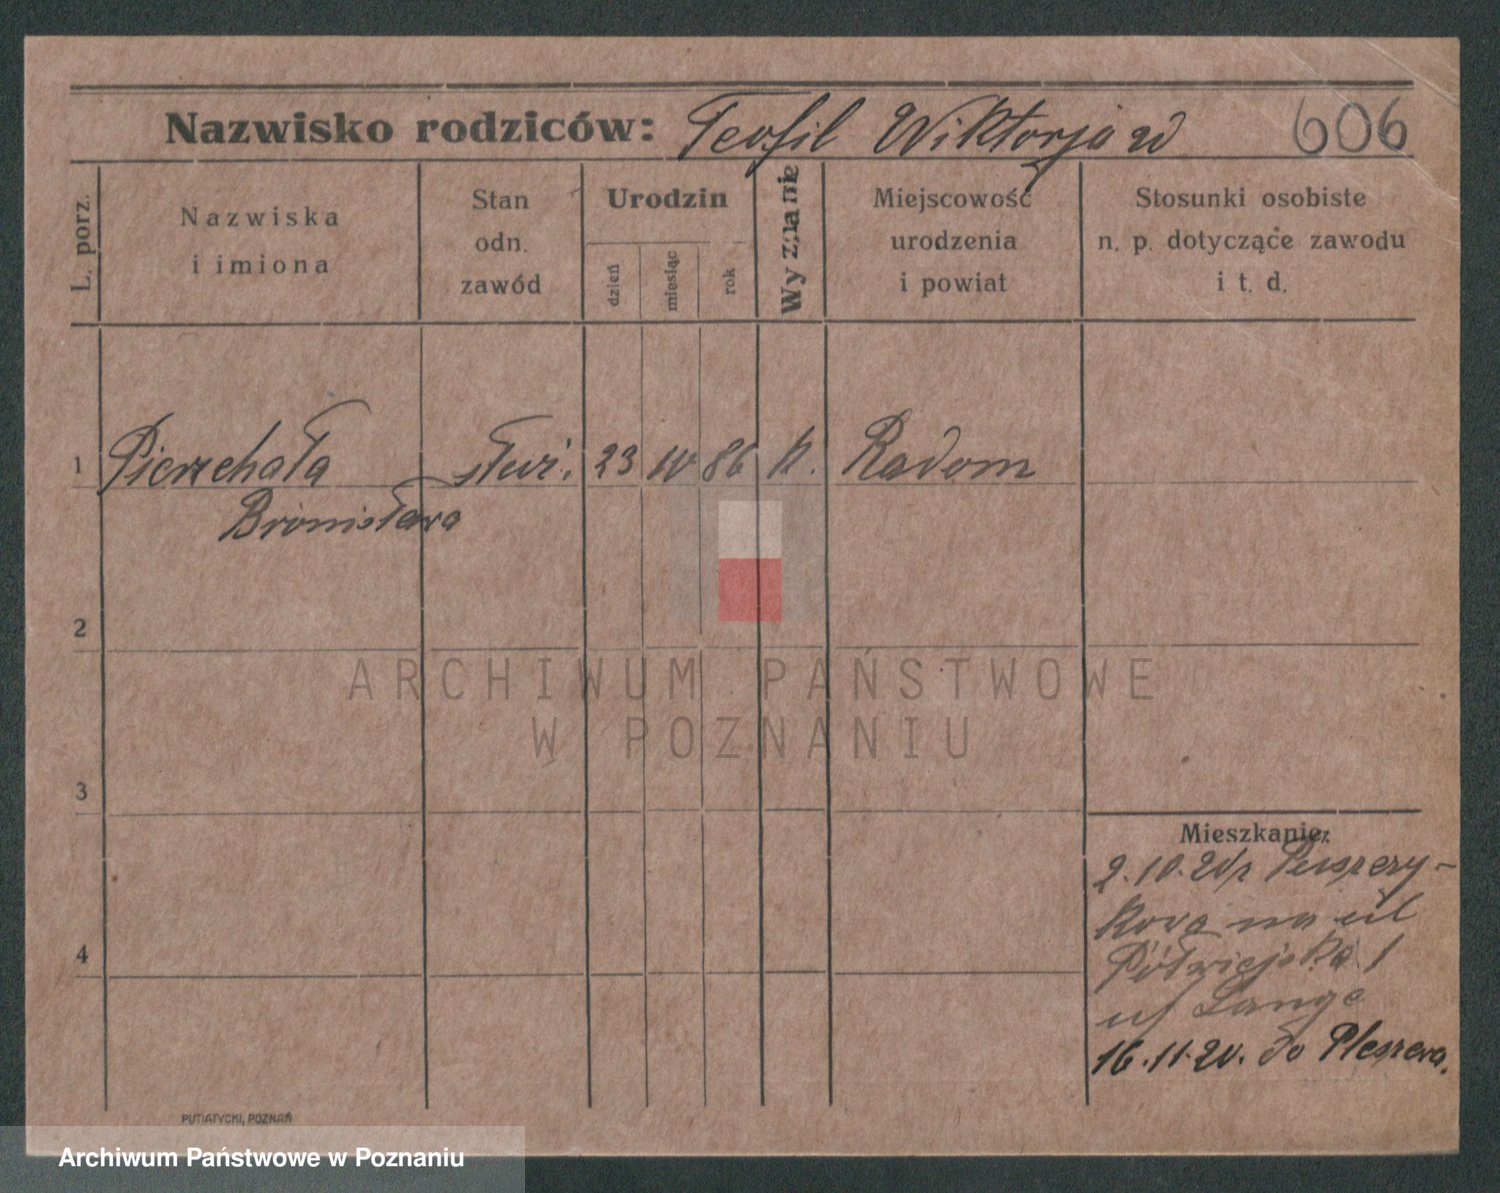 Nazwisko rodziców: Teofil Wiktorja 606
L. porz.
Nazwiska
i imiona
Stan
odn.
zawód
Urodzin
dzień
miesiąc
rok
Wyznanie
Miejscowość
urodzenia
i powiat
Stosunki osobiste
n. p. dotyczące zawodu
i t. d.
1 Pierzchała służ. 23 10 86 k. Radom
Bronisława
2
3
4
Mieszkanie:
2.10.20
na ul
Półwiejska 1
Lange
16.11.20. do Pleszewa.
PUTIATYCKI, POZNAŃ
ARCHIWUM PAŃSTWOWE
W POZNANIU
Archiwum Państwowe w Poznaniu